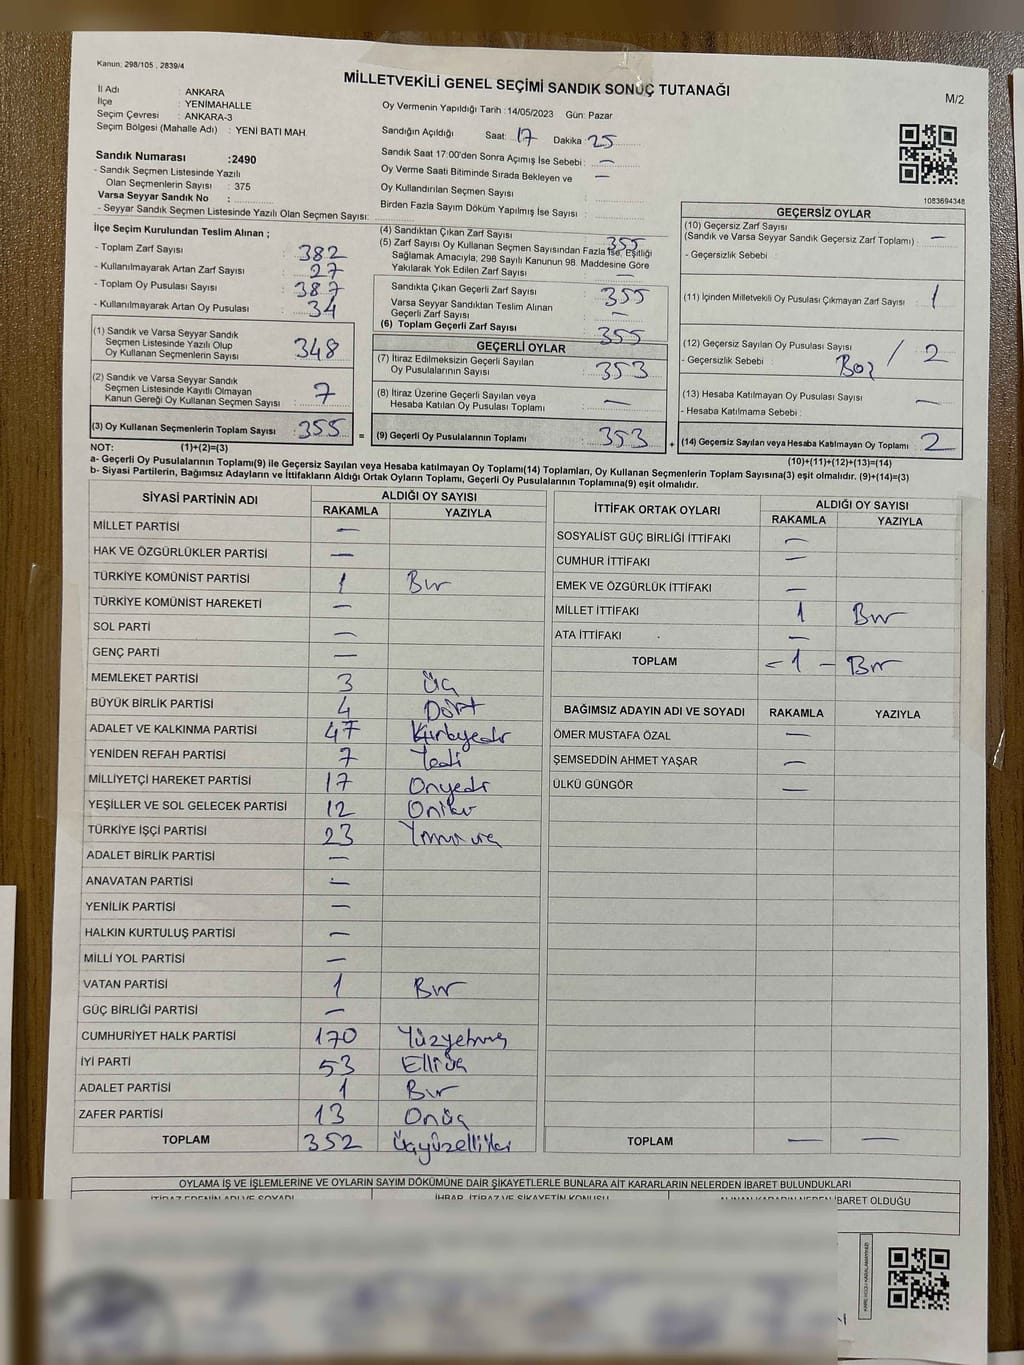 Kanun: 298/105 , 2839/4
MİLLETVEKİLİ GENEL SEÇİMİ SANDIK SONUÇ TUTANAĞI
M/2
İl Adı : ANKARA
İlçe : YENİMAHALLE
Seçim Çevresi : ANKARA-3
Seçim Bölgesi (Mahalle Adı) : YENİ BATI MAH.
Sandık Numarası :2490
- Sandık Seçmen Listesinde Yazılı
Olan Seçmenlerin Sayısı : 375
Varsa Seyyar Sandık No :
- Seyyar Sandık Seçmen Listesinde Yazılı Olan Seçmen Sayısı:
Oy Vermenin Yapıldığı Tarih : 14/05/2023 Gün: Pazar
Sandığın Açıldığı Saat: 17 Dakika : 25
Sandık Saat 17:00'den Sonra Açımış İse Sebebi : —
Oy Verme Saati Bitiminde Sırada Bekleyen ve —
Oy Kullandırılan Seçmen Sayısı :
Birden Fazla Sayım Döküm Yapılmış İse Sayısı :
1083694348
İlçe Seçim Kurulundan Teslim Alınan ;
- Toplam Zarf Sayısı : 382
- Kullanılmayarak Artan Zarf Sayısı : 27
- Toplam Oy Pusulası Sayısı : 387
- Kullanılmayarak Artan Oy Pusulası : 34
(1) Sandık ve Varsa Seyyar Sandık
Seçmen Listesinde Yazılı Olup
Oy Kullanan Seçmenlerin Sayısı : 348
(2) Sandık ve Varsa Seyyar Sandık
Seçmen Listesinde Kayıtlı Olmayan
Kanun Gereği Oy Kullanan Seçmen Sayısı : 7
(3) Oy Kullanan Seçmenlerin Toplam Sayısı : 355 =
(1)+(2)=(3)
(4) Sandıktan Çıkan Zarf Sayısı : 355
(5) Zarf Sayısı Oy Kullanan Seçmen Sayısından Fazla İse, Eşitliği
Sağlamak Amacıyla, 298 Sayılı Kanunun 98. Maddesine Göre
Yakılarak Yok Edilen Zarf Sayısı : —
Sandıkta Çıkan Geçerli Zarf Sayısı : 355
Varsa Seyyar Sandıktan Teslim Alınan
Geçerli Zarf Sayısı : —
(6) Toplam Geçerli Zarf Sayısı : 355
GEÇERLİ OYLAR
(7) İtiraz Edilmeksizin Geçerli Sayılan
Oy Pusulalarının Sayısı : 353
(8) İtiraz Üzerine Geçerli Sayılan veya
Hesaba Katılan Oy Pusulası Toplamı : —
(9) Geçerli Oy Pusulalarının Toplamı : 353 +
GEÇERSİZ OYLAR
(10) Geçersiz Zarf Sayısı
(Sandık ve Varsa Seyyar Sandık Geçersiz Zarf Toplamı) : —
- Geçersizlik Sebebi :
(11) İçinden Milletvekili Oy Pusulası Çıkmayan Zarf Sayısı : 1
(12) Geçersiz Sayılan Oy Pusulası Sayısı : 2
- Geçersizlik Sebebi : Boş /
(13) Hesaba Katılmayan Oy Pusulası Sayısı : —
- Hesaba Katılmama Sebebi :
(14) Geçersiz Sayılan veya Hesaba Katılmayan Oy Toplamı : 2
(10)+(11)+(12)+(13)=(14)
NOT:
a- Geçerli Oy Pusulalarının Toplamı(9) ile Geçersiz Sayılan veya Hesaba katılmayan Oy Toplamı(14) Toplamları, Oy Kullanan Seçmenlerin Toplam Sayısına(3) eşit olmalıdır. (9)+(14)=(3)
b- Siyasi Partilerin, Bağımsız Adayların ve İttifakların Aldığı Ortak Oyların Toplamı, Geçerli Oy Pusulalarının Toplamına(9) eşit olmalıdır.
SİYASİ PARTİNİN ADI ALDIĞI OY SAYISI
RAKAMLA YAZIYLA
MİLLET PARTİSİ —
HAK VE ÖZGÜRLÜKLER PARTİSİ —
TÜRKİYE KOMÜNİST PARTİSİ 1 Bir
TÜRKİYE KOMÜNİST HAREKETİ —
SOL PARTİ —
GENÇ PARTİ —
MEMLEKET PARTİSİ 3 Üç
BÜYÜK BİRLİK PARTİSİ 4 Dört
ADALET VE KALKINMA PARTİSİ 47 Kırkyedi
YENİDEN REFAH PARTİSİ 7 Yedi
MİLLİYETÇİ HAREKET PARTİSİ 17 Onyedi
YEŞİLLER VE SOL GELECEK PARTİSİ 12 Oniki
TÜRKİYE İŞÇİ PARTİSİ 23 Yirmiüç
ADALET BİRLİK PARTİSİ —
ANAVATAN PARTİSİ —
YENİLİK PARTİSİ —
HALKIN KURTULUŞ PARTİSİ —
MİLLİ YOL PARTİSİ —
VATAN PARTİSİ 1 Bir
GÜÇ BİRLİĞİ PARTİSİ —
CUMHURİYET HALK PARTİSİ 170 Yüzyetmiş
İYİ PARTİ 53 Elliüç
ADALET PARTİSİ 1 Bir
ZAFER PARTİSİ 13 Onüç
TOPLAM 352 Üçyüzelliiki
İTTİFAK ORTAK OYLARI ALDIĞI OY SAYISI
RAKAMLA YAZIYLA
SOSYALİST GÜÇ BİRLİĞİ İTTİFAKI —
CUMHUR İTTİFAKI —
EMEK VE ÖZGÜRLÜK İTTİFAKI —
MİLLET İTTİFAKI 1 Bir
ATA İTTİFAKI —
TOPLAM - 1 - Bir
BAĞIMSIZ ADAYIN ADI VE SOYADI RAKAMLA YAZIYLA
ÖMER MUSTAFA ÖZAL —
ŞEMSEDDİN AHMET YAŞAR —
ÜLKÜ GÜNGÖR —
TOPLAM — —
OYLAMA İŞ VE İŞLEMLERİNE VE OYLARIN SAYIM DÖKÜMÜNE DAİR ŞİKAYETLERLE BUNLARA AİT KARARLARIN NELERDEN İBARET BULUNDUKLARI
İTİRAZ EDENİN ADI VE SOYADI İHBAR, İTİRAZ VE ŞİKAYETİN KONUSU ALINAN KARARIN NEDEN İBARET OLDUĞU